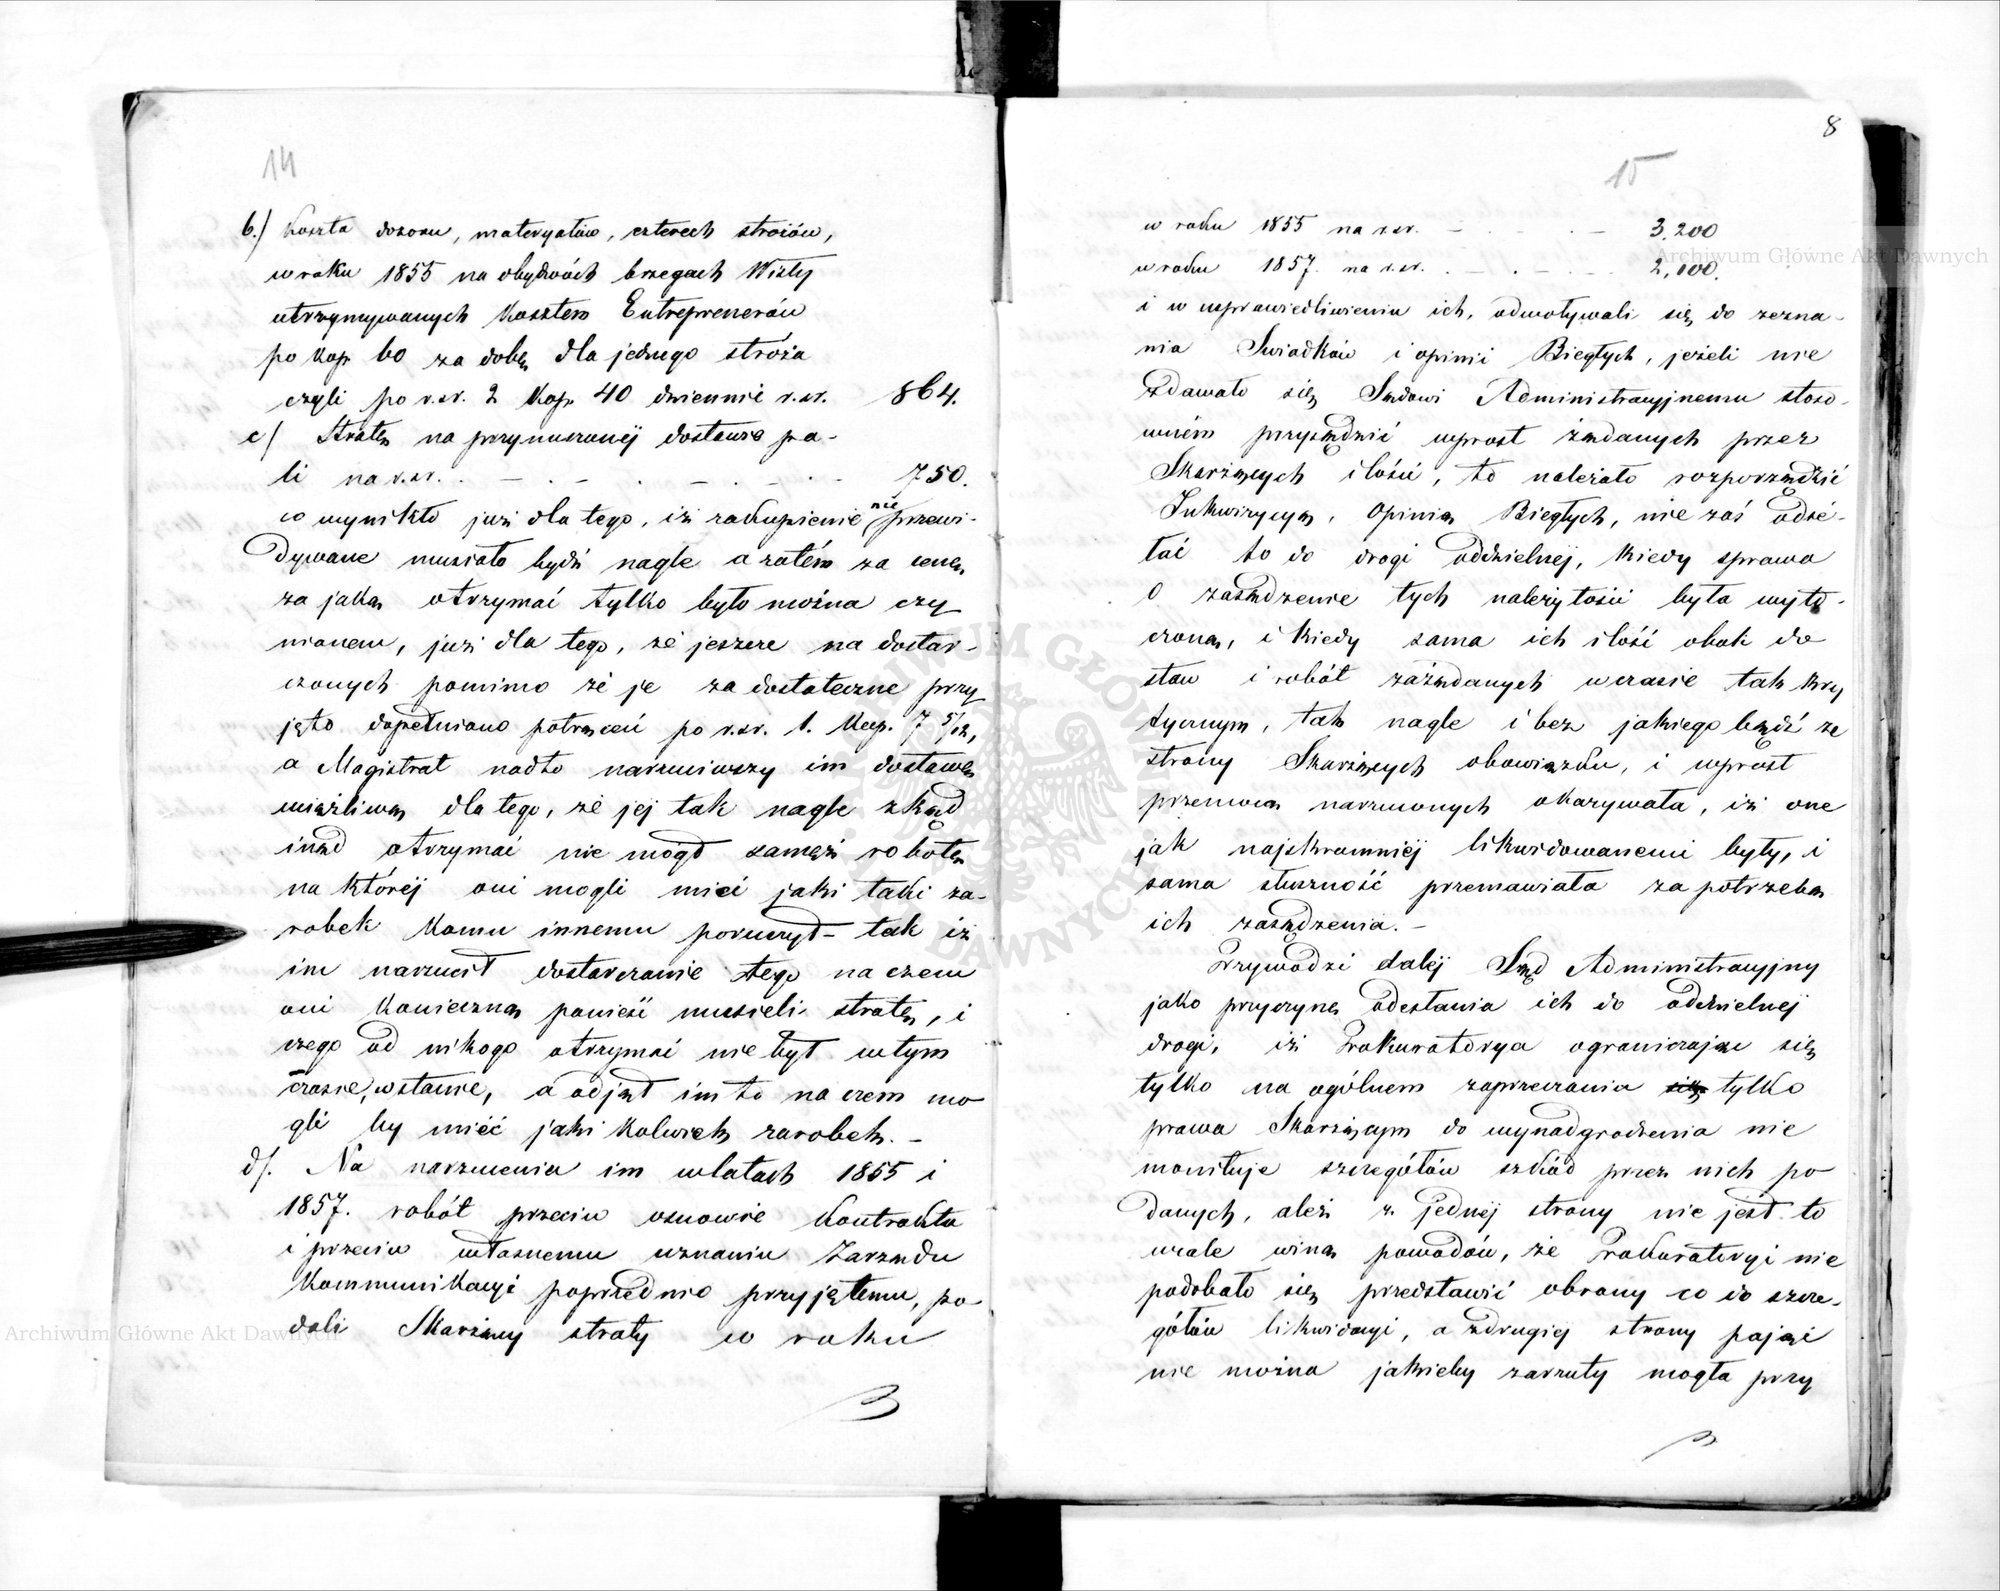 14
b./ Koszta dozoru, materyałów, czterech stróżów,
w roku 1855 na obydwóch brzegach Wisły
utrzymywanych Kosztem Entreprenerów
po kop. 60 za dobę dla jednego stróża
czyli po r.sr. 2 Kop. 40 dziennie r.sr. 864.
c/ Stratę na przymuszonéj dostawie pa-
li na r.sr. . — . — . — . — 750.
co wynikło już dla tego, iż zakupienie nie przewi-
dywane musiało bydź nagle a zatém za cenę
za jaką otrzymać tylko było można czy
nionem, już dla tego, że jeszcze na dostar-
czonych pomimo że je za dostateczne przy
jęto dopełniono potrąceń po r.sr. 1. Kop. 7 5/12,
a Magistrat nadto narzuciwszy im dostawę
uciążliwą dla tego, że jej tak nagle zkąd
inąd otrzymać nie mógł samąż robotę
na któréj oni mogli mieć jaki taki za-
robek komu innemu poruczył – tak iż
im narzucił dostarczanie tego na czem
oni konieczną ponieść musieli stratę, i
czego od nikogo otrzymać nie był w tym
czasie, wstanie, a odjął im to na czem mo
gli by mieć jaki kolwiek zarobek. –
d/. Na narzucenia im w latach 1855 i
1857. robót przeciw osnowie Kontraktu
i przeciw własnemu uznaniu Zarządu
Kommunikacyi poprzednio przyjętemu, po-
dali Skarżący straty w roku
8
15
w roku 1855 na r.sr. — . . — 3,200
w roku 1857. na r.sr. . . — . — 2,100.
i w usprawiedliwieniu ich, odwoływali się do zezna-
nia Świadków i opinii Biegłych, jeżeli nie
zdawało się Sądowi Administracyjnemu stoso-
wném przysądzić wprost żądanych przez
Skarżących ilości, to należało rozporządzić
Inkwizycyą, Opinią Biegłych, nie zaś odsé-
łać to do drogi oddzielnej, kiedy sprawa
o zasądzenie tych należytości była wyto-
czoną, i kiedy sama ich ilość obok do
staw i robót zażądanych w czasie tak kry
tycznym, tak nagle i bez jakiego bądź ze
strony Skarżących obowiązku, i wprost
przemocą narzuconych okazywała, iż one
jak najskromniéj likwidowanemi były, i
sama słuszność przemawiała za potrzebą
ich zasądzenia. –
Przywodzi daléj Sąd Administracyjny
jako przyczynę odesłania ich do oddzielnej
drogi, iż Prokuratorya ograniczając się
tylko na ogólnem zaprzeczaniu się tylko
prawa Skarżącym do wynadgrodzenia nie
monituje szczegółów szkód przez nich po
danych, ależ z jednéj strony nie jest to
wcale winą powodów, że Prokuratoryi nie
podobało się przedstawić obrony co do szcze-
gółów likwidacyi, a zdrugiéj strony pojąć
nie można jakieby zarzuty mogła przy